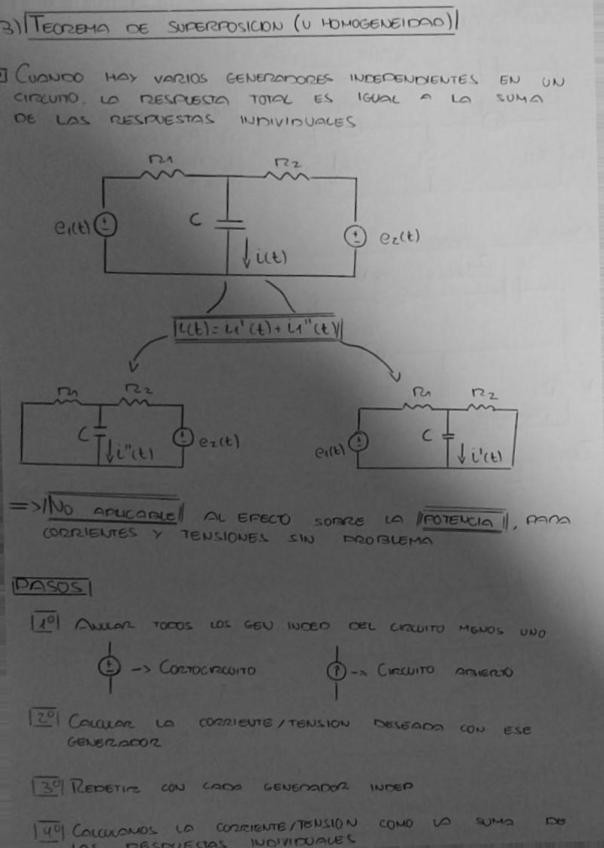 3) TEOREMA DE SUPERPOSICION (U HOMOGENEIDAD)
CUANDO HAY VARIOS GENERADORES INDEPENDIENTES EN UN
CIRCUITO, LA RESPUESTA TOTAL ES IGUAL A LA SUMA
DE LAS RESPUESTAS INDIVIDUALES
R1 R2
e1(t) C e2(t)
i(t)
i(t) = i1'(t) + i1''(t)
R1 R2 R1 R2
C i''(t) e2(t) e1(t) C i'(t)
=> NO APLICABLE AL EFECTO SOBRE LA POTENCIA, PARA
CORRIENTES Y TENSIONES SIN PROBLEMA
PASOS
1º ANULAR TODOS LOS GEN INDEP DEL CIRCUITO MENOS UNO
-> CORTOCIRCUITO -> CIRCUITO ABIERTO
2º CALCULAR LA CORRIENTE/TENSION DESEADA CON ESE
GENERADOR
3º REPETIR CON CADA GENERADOR INDEP
4º CALCULAMOS LA CORRIENTE/TENSION COMO LA SUMA DE
LAS RESPUESTAS INDIVIDUALES